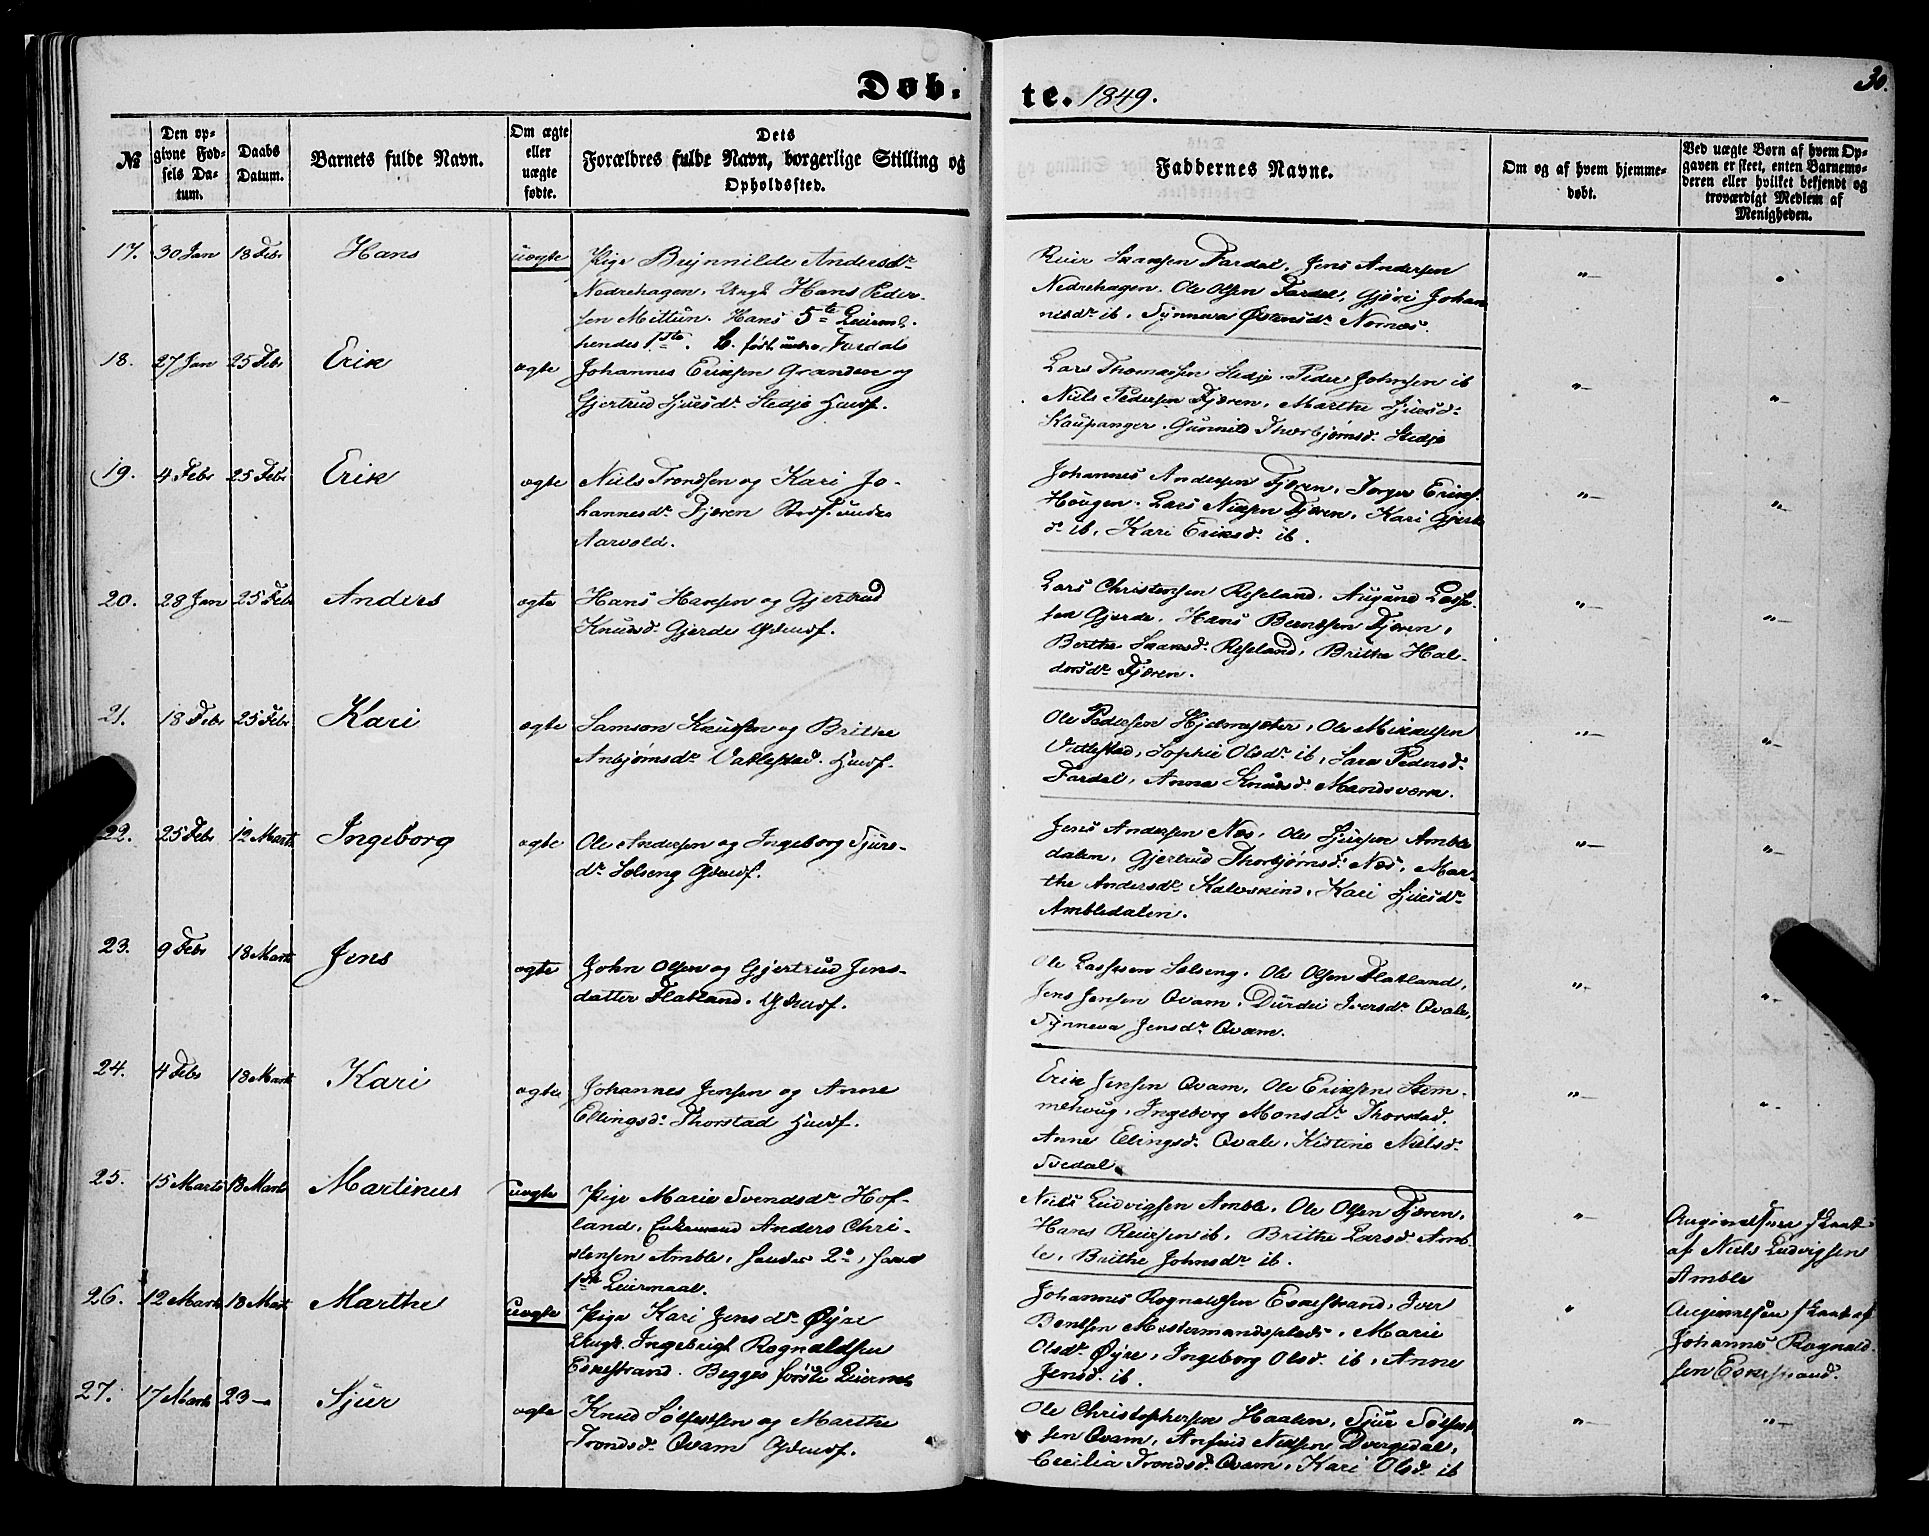 30.
Døb-
te. 1849.
№
Den op-
givne Fød-
sels Da-
tum.
Daabs
Datum.
Barnets fulde Navn.
Om ægte
eller
uægte
fødte.
Dets
Forældres fulde Navn, borgerlige Stilling og
Opholdssted.
Faddernes Navne.
Om og af hvem hjemme-
døbt.
Ved uægte Børn af hvem Op-
gaven er skeet, enten Barnemo-
deren eller hvilket bekjendt og
troværdigt Medlem af
Menigheden.
17. 30 Jan 18 Febr Hans uægte
Pige Brynnilde Andersdr
Nedrehagen. Ungk Hans Peder-
sen Mittun. Hans 5te Leierm.
hendes 1ste. B. født under Fardal
Reier Hansen Fardal, Jens Andersen
Nedrehagen. Ole Olsen Fardal, Gjøri Johan
nisdr ib. Synneva Østensdr Nornes.
"—
"
18. 27 Jan 25 Febr Erik ægte
Johannes Eriksen Granden og
Gjertrud Sjursdr Stedje Husf.
Lars Thomassen Stedje. Peder Johnsen ib
Niels Pedersen Fjæren, Marthe Sjursdr
Kaupanger. Gunnild Thorbjørnsdr Stedje
"—
"—
19. 4 Febr 25 Febr Erik ægte
Niels Trondsen og Kari Jo-
hannesdr Fjæren Strdf. under
Aarvold.
Johannes Andersen Fjæren, Torger Eriks.
Hougen. Lars Nielsen Fjæren, Kari Gjert
dr ib, Kari Eriksdr ib.
"—
"—
20. 28 Jan 25 Febr Anders ægte
Hans Hansen og Gjertrud
Knudsdr Gjerde Gdmdf.
Lars Christensen Reseland, Augund Lasse-
sen Gjerde. Hans Berntsen Fjæren,
Berthe Hansdr Reseland, Brithe Hal-
dorsdr Fjæren.
"—
"—
21. 18 Febr 25 Febr Kari ægte
Samson Knudsen og Brithe
Anbjørnsdr Vatlestad. Husf.
Ole Pedersen Hjelmesæter, Ole Mikkelsen
Vatlestad, Sophie Olsdr ib, Sara Pedersdr
Fardal, Anna Knudsdr Mandsværk.
"—
"—
22. 25 Febr 12 Marts Ingeborg ægte
Ole Andersen og Ingeborg Sjurs-
dr Solseng Gdmdf.
Jens Andersen Næs, Ole Sjursen Amble
dalen, Gjertrud Thorbjørnsdr Næs, Mar-
the Andersdr Kalvskind, Kari Sjursdr
Ambledalen.
"—
"—
23. 9 Febr 18 Marts Jens ægte
John Olsen og Gjertrud Jens-
datter Flatland. Gdmdf.
Ole Lassesen Solseng, Ole Olsen Flatland,
Jens Jensen Qvam, Durdei Iversdr Qvale,
Synneva Jensdr Qvam.
"—
"—
24. 4 Febr 18 Marts Kari ægte
Johannes Jensen og Anne
Ellingsdr Thorstad Husf.
Erik Jensen Qvam, Ole Eriksen Stem-
mehoug, Ingeborg Monsdr Thorstad
Anne Elingsdr Qvale, Kistine Nielsdr
Svedal.
"—
"—
25. 15 Marts 18 Marts Martinus uægte
Pige Marie Svendsdr Hof-
land, Enkemand Anders Chri-
stensen Amble, hendes 2o, hans
1ste Leiermaal.
Niels Ludvigsen Amble, Ole Olsen Fjæren,
Hans Reiersen ib, Brithe Larsdr Amb-
le, Brithe Johnsdr ib.
"—
Angivelsen skeet
af Niels Ludvigsen
Amble
26. 12 Marts 18 Mart. Marthe uægte
Pige Kari Jensdr Øyre
Ungk. Ingebrigt Rognaldsen
Eskestrand. Begges første Leierm
Johannes Rognaldsen Eskestrand, Iver
Bentsen Mestermandsplads, Marie
Olsdr Øyre, Ingeborg Olsdr ib, Anne
Jensdr ib.
"
Angivelsen skeet af
Johannes Rognald-
sen Eskestrand.
27. 17 Marts 23 — Sjur ægte
Knud Sølfestsen og Marthe
Trondsdr Qvam Gdmdf.
Ole Christophersen Haalen, Sjur Sølfest
sen Qvam, Anfind Nielsen Dvergedal,
Cecilia Trondsdr Qvam, Kari Olsdr ib
"—
"—